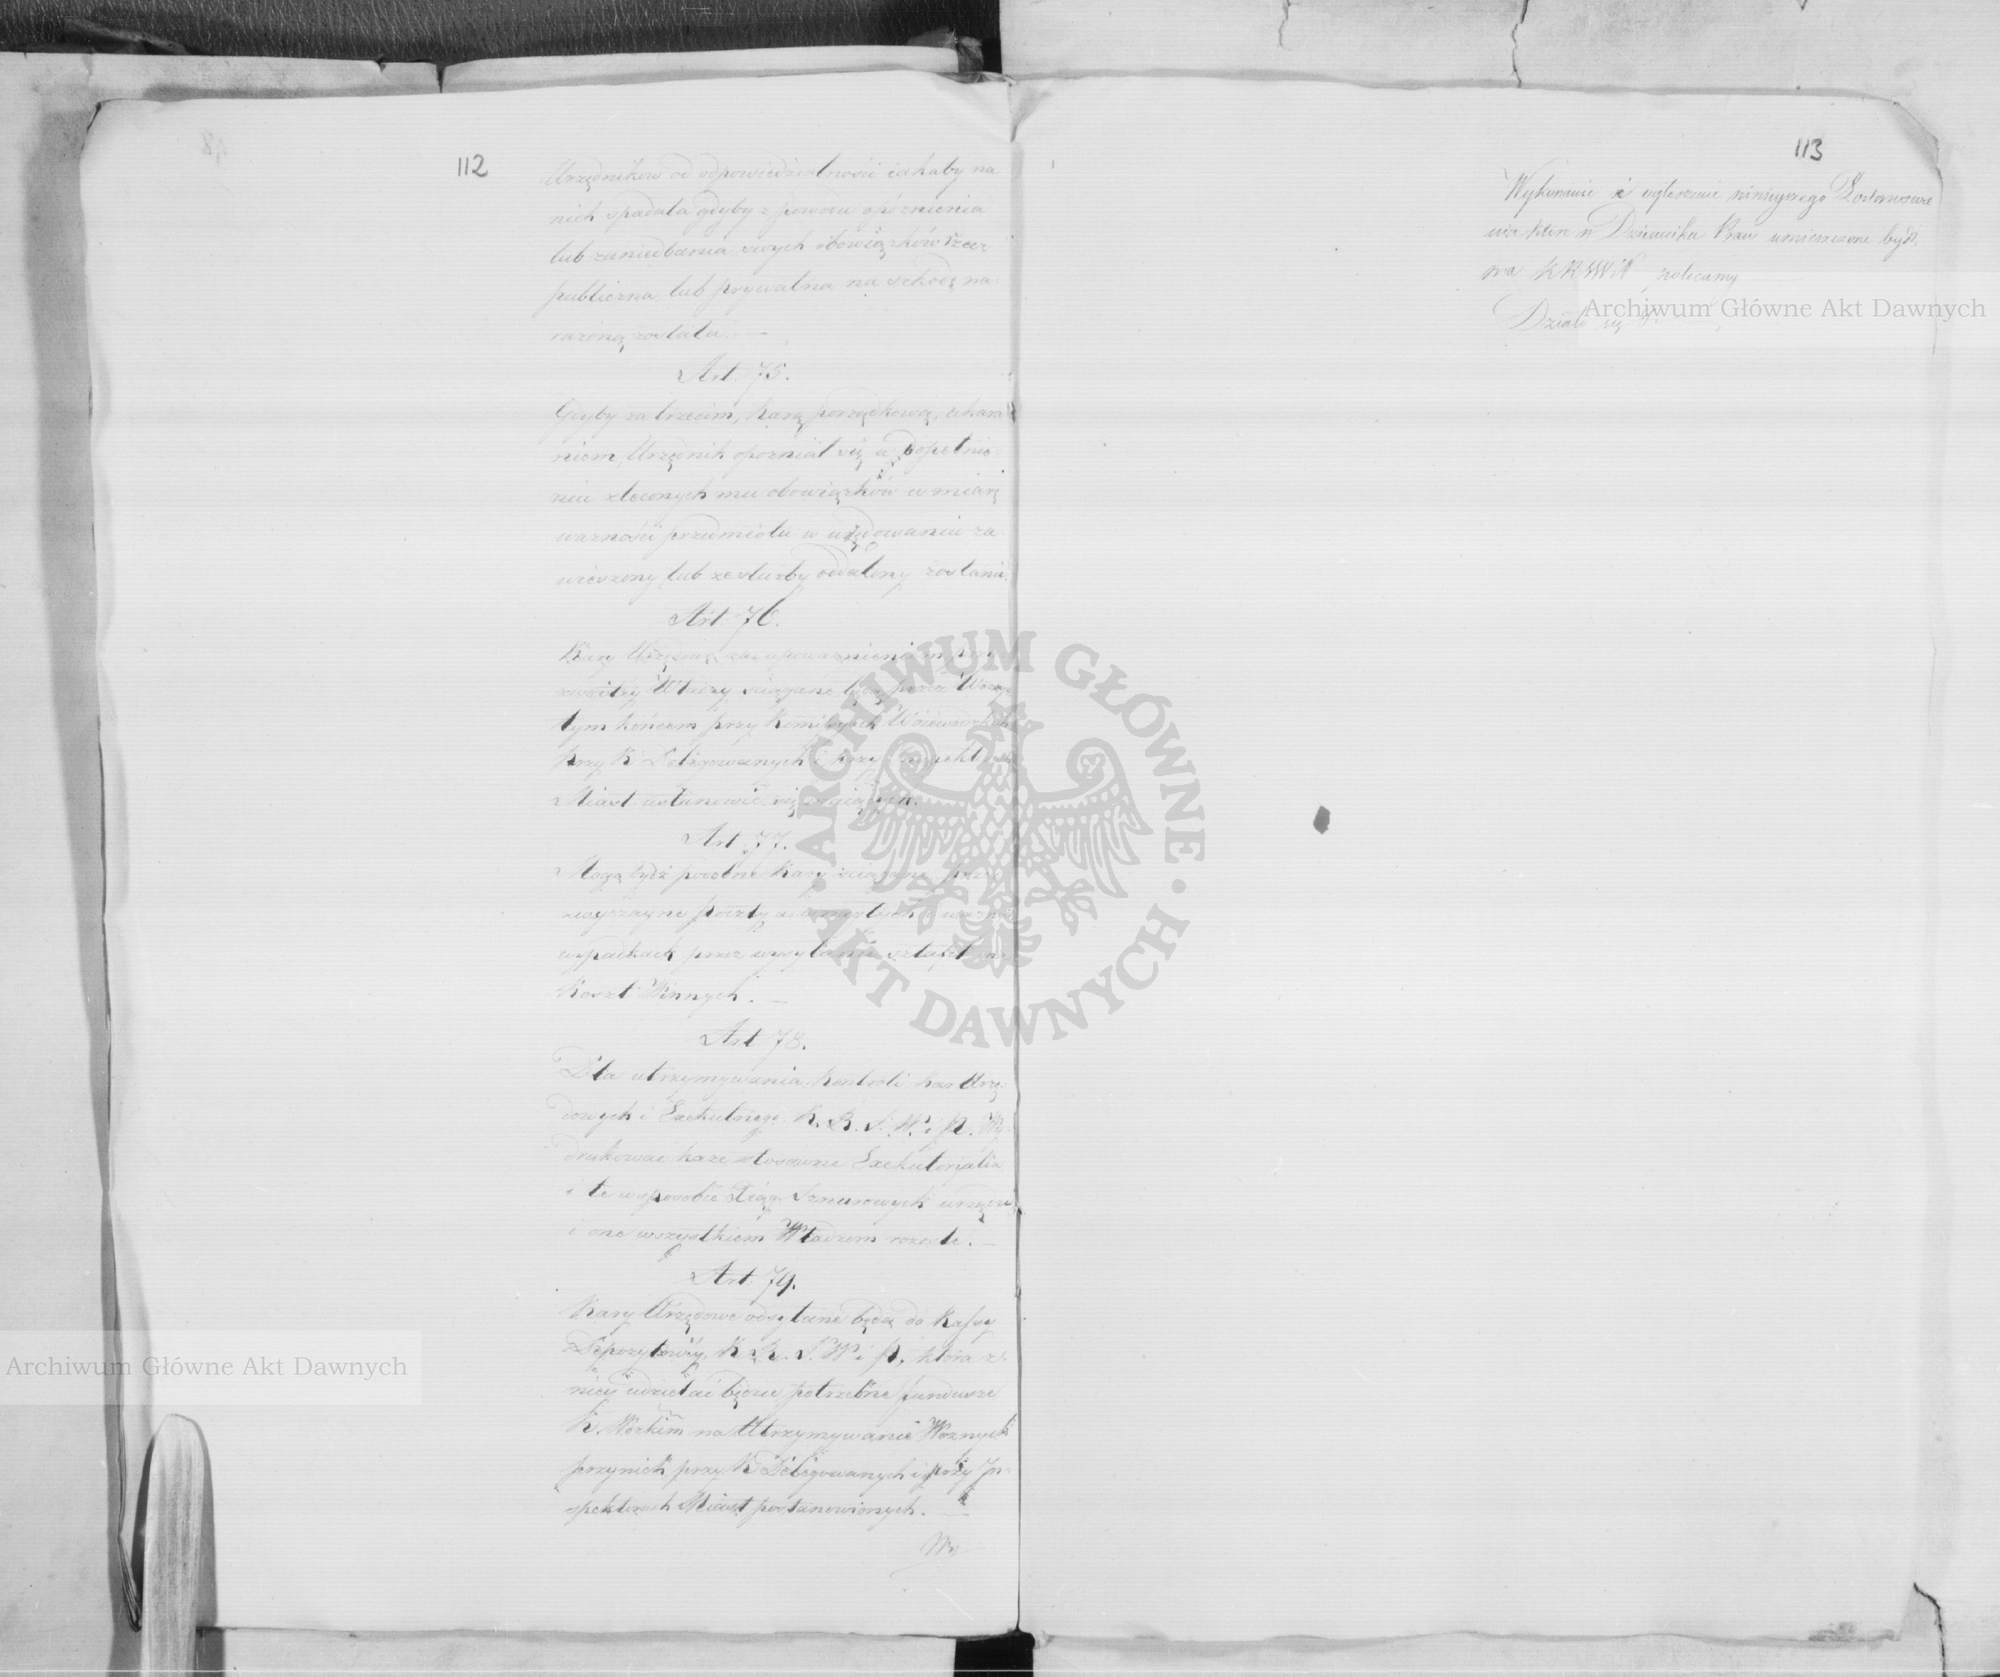 112
Urzędników od odpowiedzialności iakaby na
nich spadała gdyby z powodu opóznienia
lub zaniedbania swych obowiązków rzecz
publiczna lub prywatna na szkodę na-
rażoną została. —
Art. 75.
Gdyby za trzecim, karą porządkową, ukara
niem, Urzędnik opozniał się w dopełnie-
niu zleconych mu obowiązków w miarę
ważności przedmiotu w urzędowaniu za-
wieszony lub ze służby oddalony zostanie.
Art. 76.
Kary Urzędowe za upoważnieniem przy
zwoitey Władzy sciągane będą przez Woznych
tym końcem przy Kommissyach Woiewodzkich
przy K. Delegowanych i przy Inspektorach
Miast ustanowić się maiących.
Art. 77.
Mogą bydź podobne kary sciągane przez
zwyczayne poczty a w nagłych i ważnych
wypadkach przez wysyłanie sztafet na
koszt Winnych. —
Art. 78.
Dla utrzymywania kontroli kar Urzę-
dowych i Exekucyi K. R. S. W. i P. Wy-
drukować każe stosowne Exekutorialia
i te w sposobie Xiąg Sznurowych urządzi
i one wszystkiem Władzom rozeszle. —
Art. 79.
Kary Urzędowe odsyłane będą do Kassy
Depozytowey K. R. S. W. i P. która z
nich udzielać będzie potrzebne fundusze
K. Wdzkim na Utrzymywanie Woznych
przy nich przy K. Delegowanych i przy In-
spektorach Miast postanowionych. —
Wy
113
Wykonanie i ogłoszenie ninieyszego Postanowie
nia które w Dzienniku Praw umieszczone bydź
ma K R S W i P polecamy
Działo się
Archiwum Główne Akt Dawnych
ARCHIWUM GŁÓWNE · AKT DAWNYCH ·
Archiwum Główne Akt Dawnych